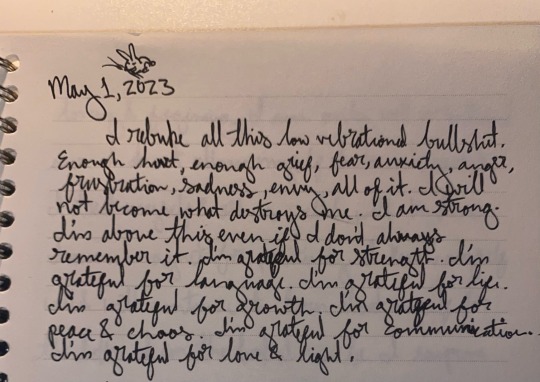 May 1, 2023
I rebuke all this low vibrational bullshit.
Enough hurt, enough grief, fear, anxiety, anger,
frustration, sadness, envy, all of it. I will
not become what destroys me. I am strong.
I'm above this even if I don't always
remember it. I'm grateful for strength. I'm
grateful for language. I'm grateful for life.
I'm grateful for growth. I'm grateful for
peace & chaos. I'm grateful for communication.
I'm grateful for love & light.